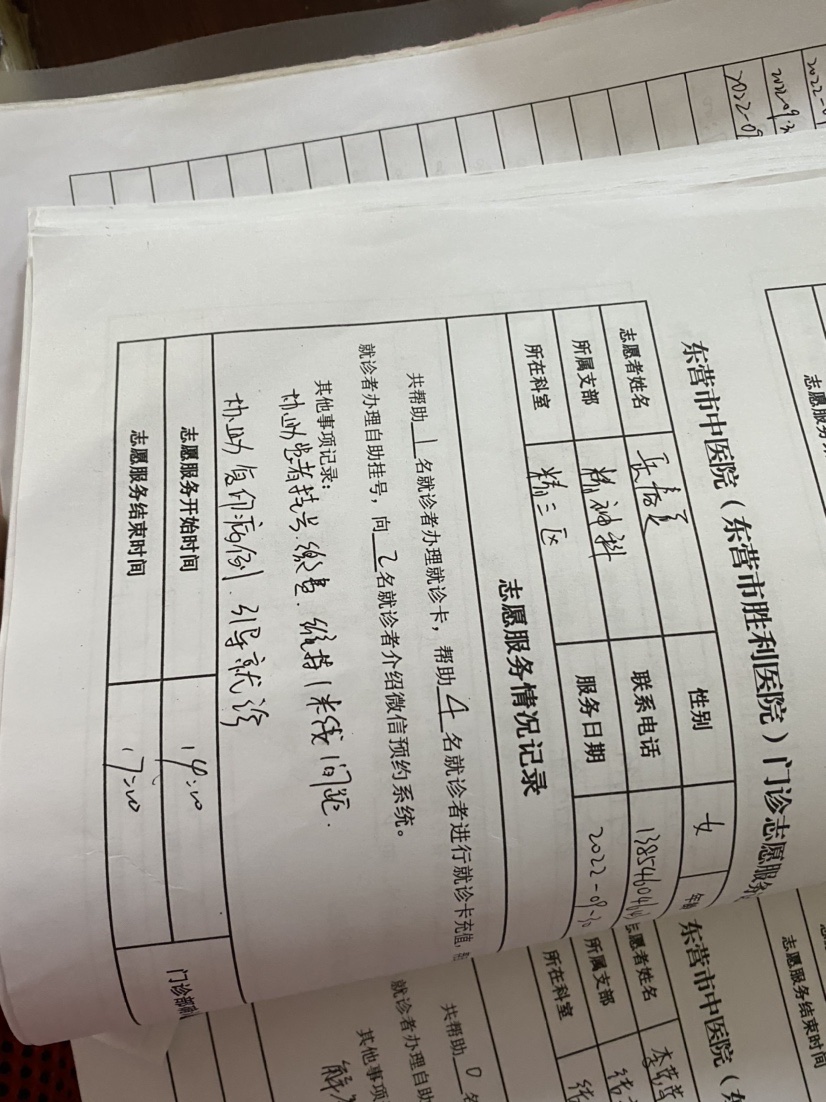 东营市中医院（东营市胜利医院）门诊志愿服务
志愿者姓名 性别 女 年
所属支部 精神科 联系电话
所在科室 精三区 服务日期 2022-09-30
志愿服务情况记录
共帮助1名就诊者办理就诊卡，帮助4名就诊者进行就诊卡充值，
就诊者办理自助挂号，向2名就诊者介绍微信预约系统。
其他事项记录：
协助患者挂号.缴费.维持1米线间距.
协助复印病例.引导就诊
志愿服务开始时间 14:00
志愿服务结束时间 17:00
门诊部
2022-09
2022.09.3
2022-0
志愿服务
志愿服务结束时间
东营市中医院（东
志愿者姓名 李
所属支部
所在科室
共帮助0名
就诊者办理自助
其他事项